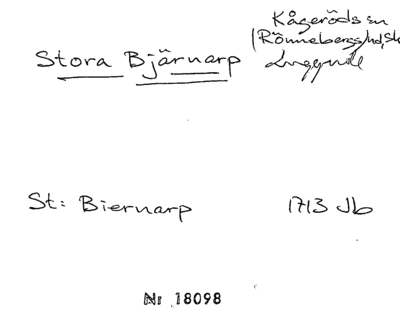 Kågeröds sn
Stora Bjärnarp (Rönnebergs hd, Sk
Luggude
St: Biernarp 1713 Jb
Nr 18098